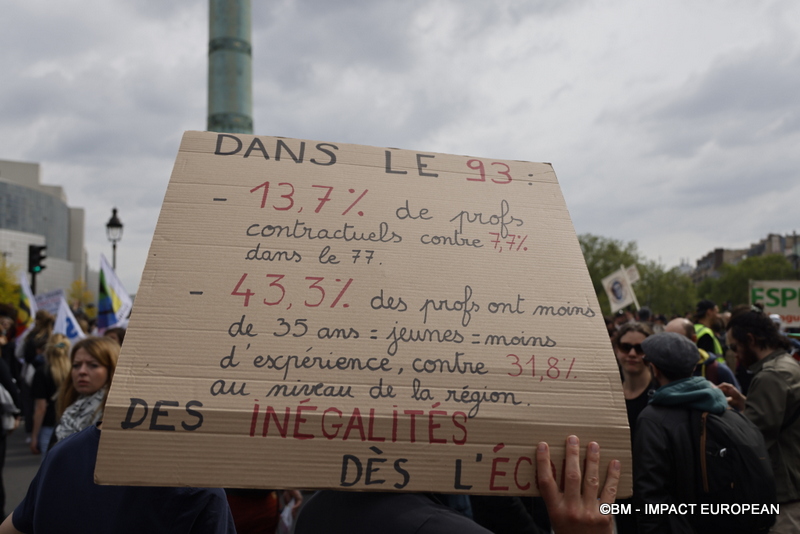 DANS LE 93 :
- 13,7% de profs
contractuels contre 7,7%
dans le 77.
- 43,3% des profs ont moins
de 35 ans = jeunes = moins
d'expérience, contre 31,8%
au niveau de la région.
DES INÉGALITÉS
DÈS L'ÉC
ESP
©BM - IMPACT EUROPEAN